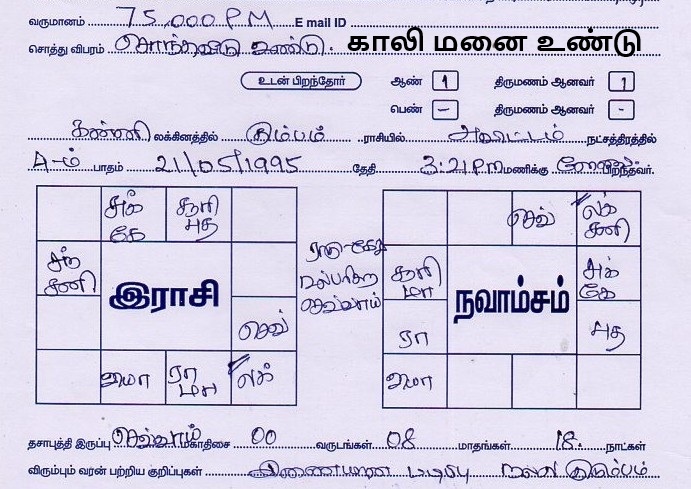 வருமானம் 75,000 P M E mail ID
சொத்து விபரம் சொந்தவீடு உண்டு. காலி மனை உண்டு
உடன் பிறந்தோர் ஆண் 1 திருமணம் ஆனவர் 1
பெண் - திருமணம் ஆனவர் -
கன்னி லக்கினத்தில் கும்பம் ராசியில் அவிட்டம் நட்சத்திரத்தில்
4-ம் பாதம் 21/05/1995 தேதி 3:21 PM மணிக்கு பிறந்தவர்.
சுக் கே சூரி புத செவ் லக் சனி
சந் சனி இராசி ராகு-கேது செவ்வாய் சூரி மா நவாம்சம் சுக் கே
செவ் ரா புத
ரா மா லக்
தசாபுத்தி இருப்பு செவ்வாய் மகாதிசை 00 வருடங்கள் 08 மாதங்கள் 18 நாட்கள்
விரும்பும் வரன் பற்றிய குறிப்புகள் இணையான படிப்பு நல்ல குடும்பம்